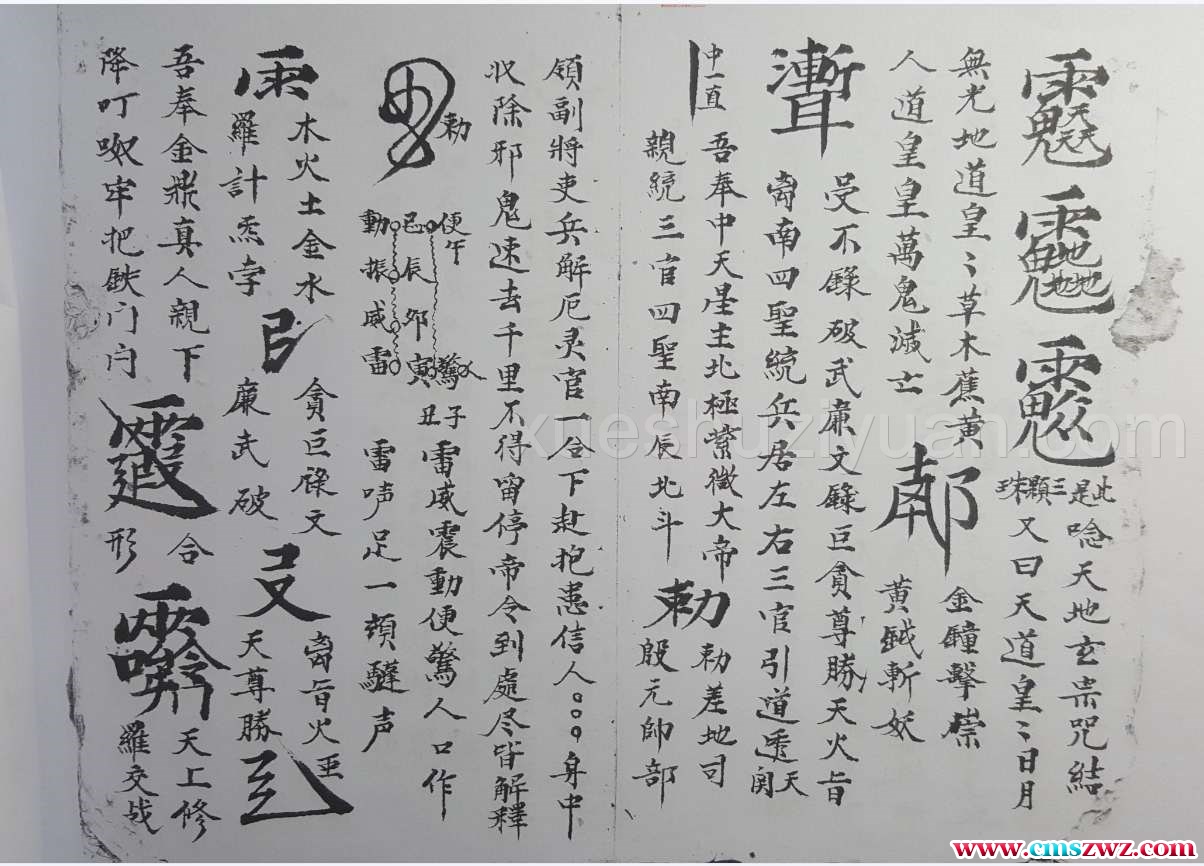 此是三顆珠
唸天地玄宗咒結
又曰天道皇〻日月
無光地道皇〻草木蕉黃
金鐘擊祟
人道皇皇萬鬼滅亡
黃鉞斬妖
受不錄破武廉文錄巨貪尊勝天火旨
离南四聖統兵居左右三官引道透天関
中一直
吾奉中天星主北極紫微大帝
勅
勅差地司
親統三官四聖南辰北斗
殷元帥部
領副將吏兵解厄灵官一合下赴抱患信人○○○身中
收除邪鬼速去千里不得留停帝令到處尽皆解釋
勅
便午
驚子
雷威震動便驚人口作
巳辰卯寅丑
動振威雷
雷声足一頭驢声
木火土金水
貪巨祿文
离旨火
羅計炁孛
廉武破
天尊勝
吾奉金鼎真人親下
合
天上修
降叮呶牢把鉄门闩
形
羅交战
xueshuziyuan.com
www.cmszwz.com